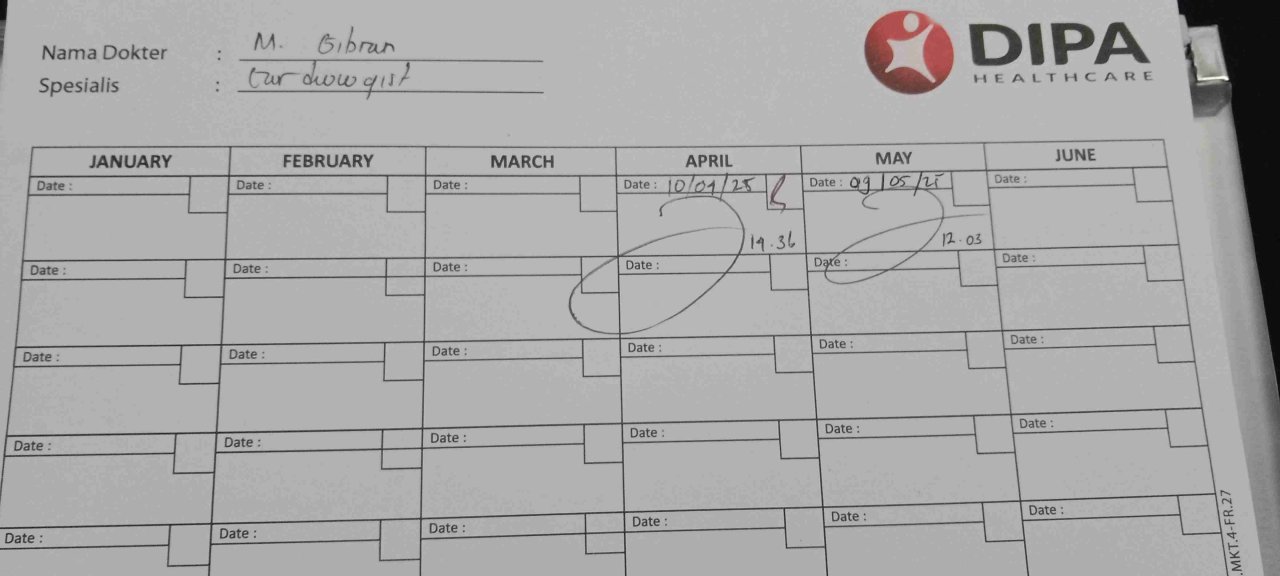 Nama Dokter : M. Gibran
Spesialis : Cardiologist
DIPA
HEALTHCARE
JANUARY FEBRUARY MARCH APRIL MAY JUNE
Date : Date : Date : Date : 10/04/25 Date : 09/05/25 Date :
14.36 12.03
Date : Date : Date : Date : Date : Date :
Date : Date : Date : Date : Date : Date :
Date : Date : Date : Date : Date : Date :
Date : Date : Date : Date : Date : Date :
.MKT.4-FR.27